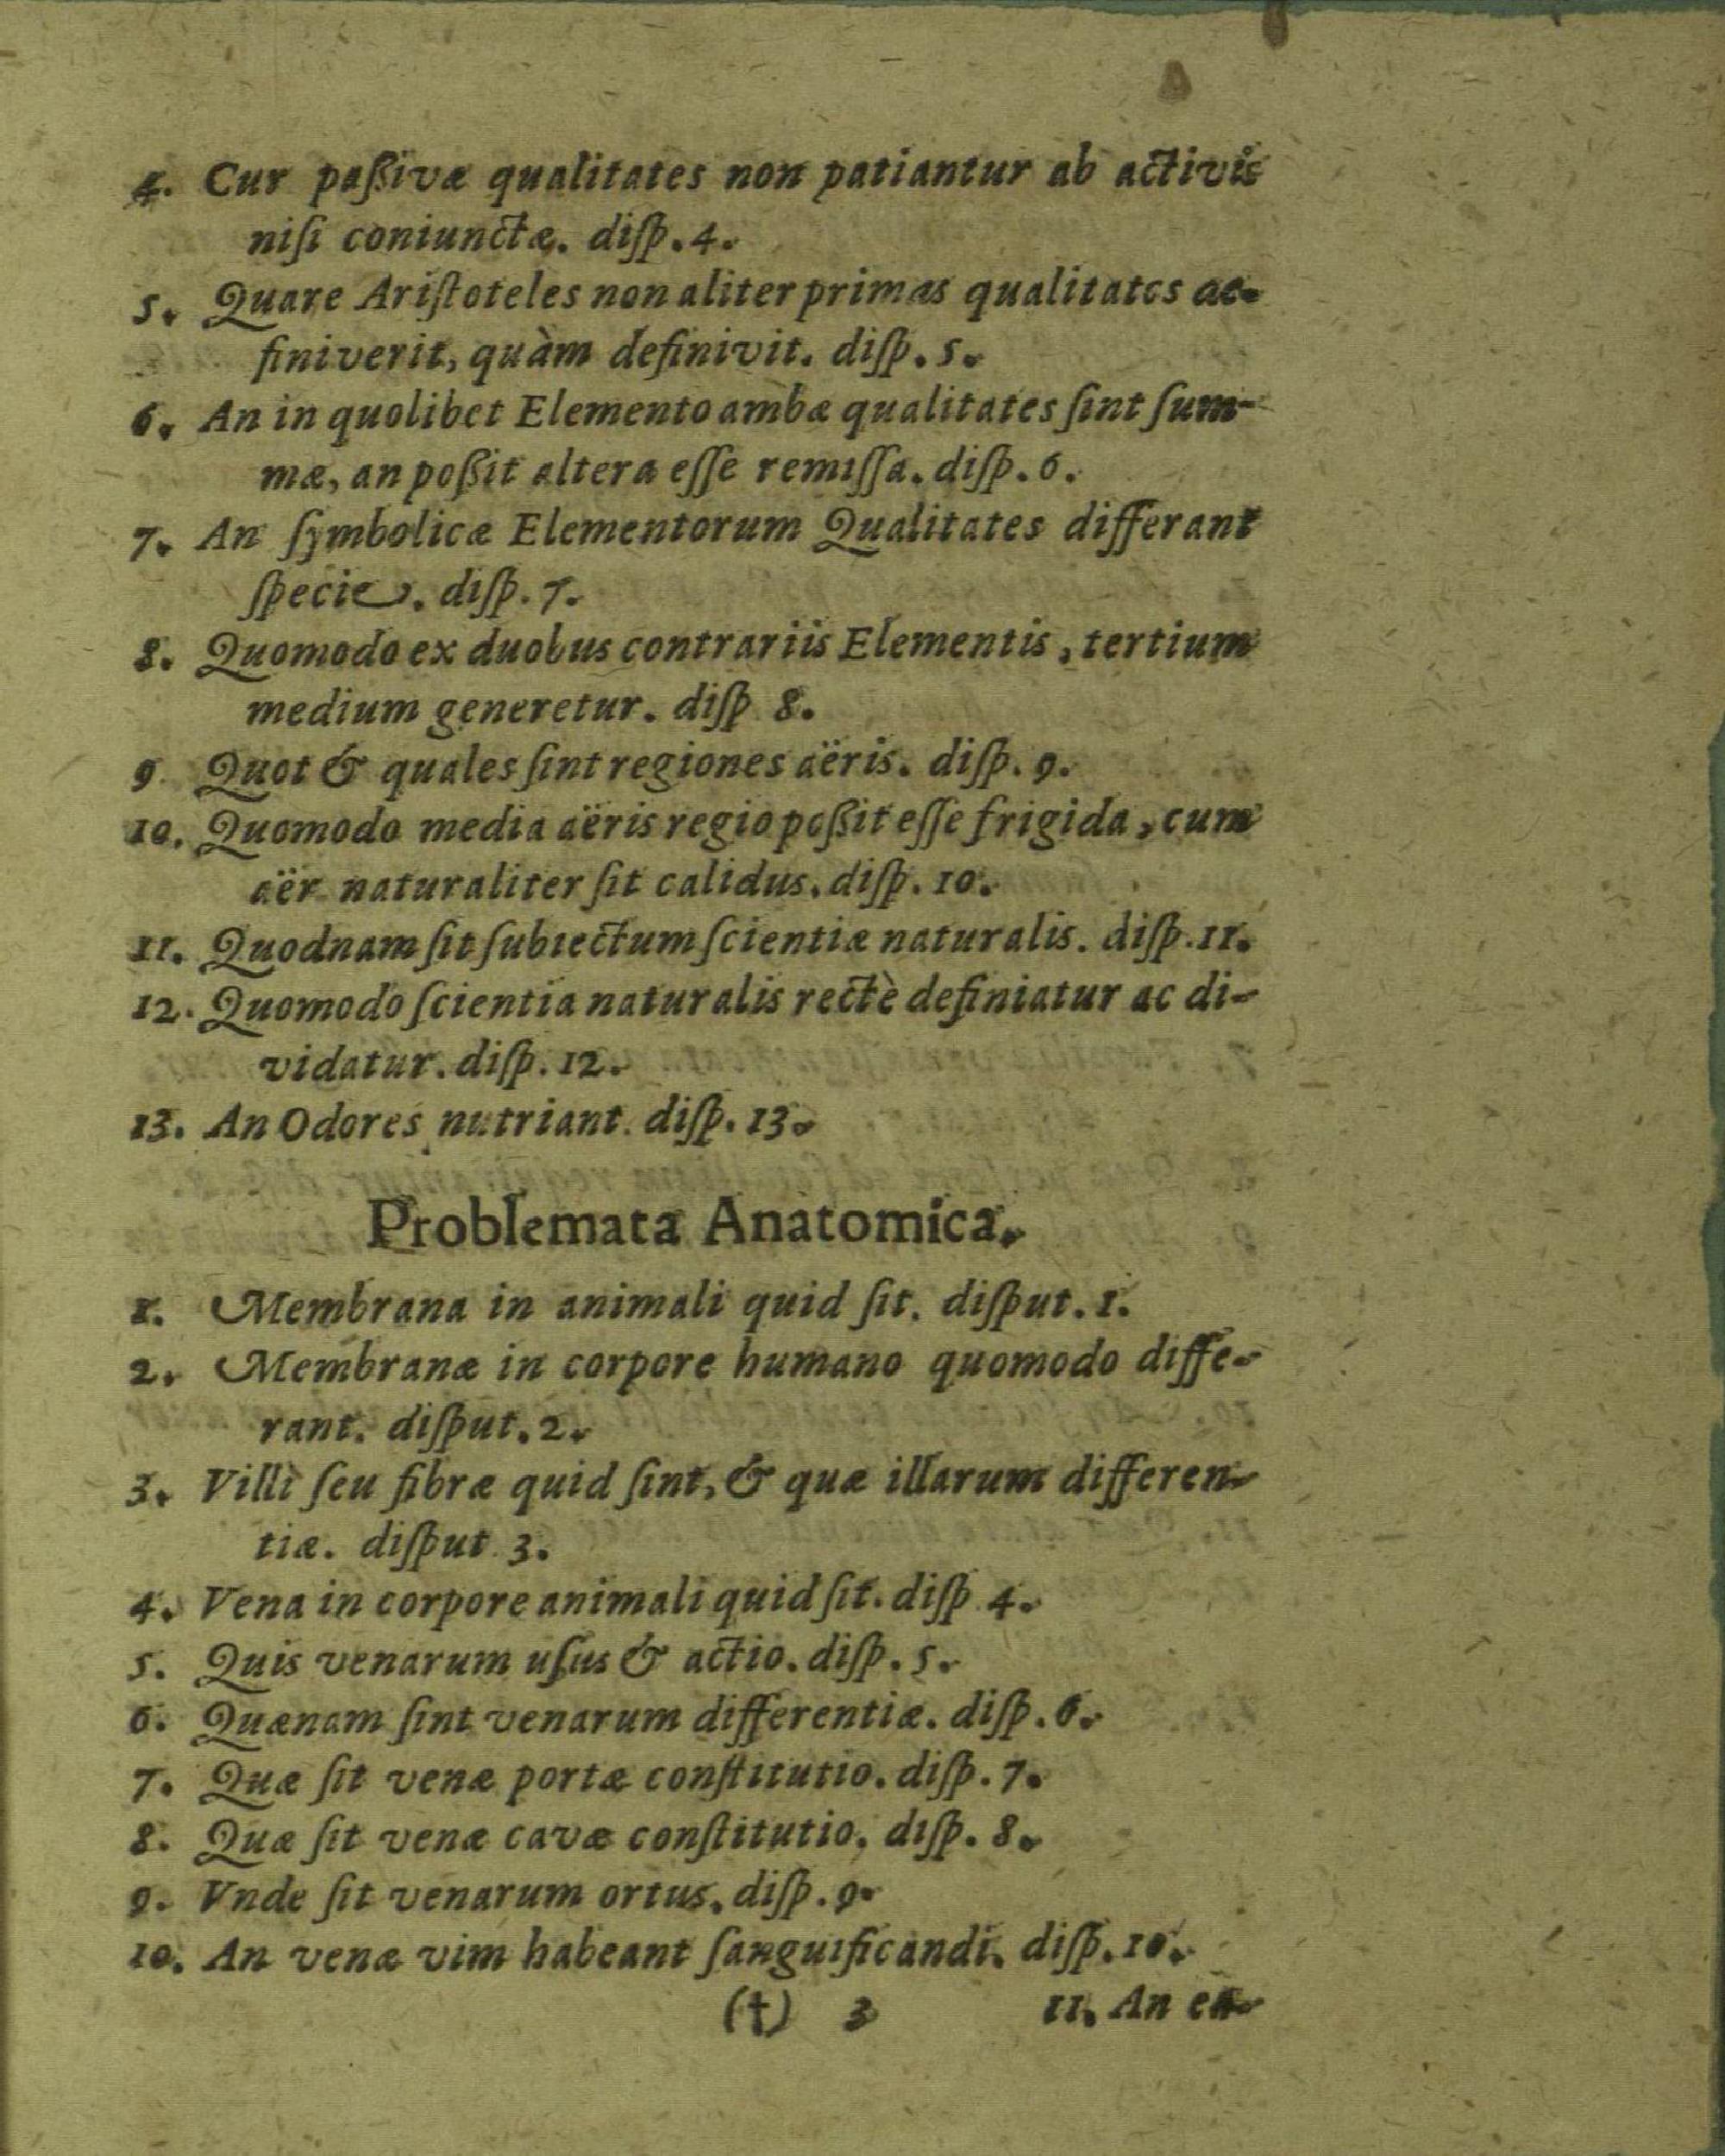 4. Cur paßivæ qualitates non patiantur ab activis
niſi coniunctæ. diſp. 4.
5. Quare Ariſtoteles non aliter primas qualitates de-
finiverit, quàm definivit. diſp. 5.
6. An in quolibet Elemento ambæ qualitates ſint ſum-
mæ, an poßit altera eſſe remiſſa. diſp. 6.
7. An ſymbolicæ Elementorum Qualitates differant
ſpecie. diſp. 7.
8. Quomodo ex duobus contrariis Elementis, tertium
medium generetur. diſp 8.
9 Quot & quales ſint regiones aëris. diſp. 9.
10. Quomodo media aëris regio poßit eſſe frigida, cum
aër naturaliter ſit calidus. diſp. 10.
11. Quodnam ſit ſubiectum ſcientiæ naturalis. diſp. 11.
12. Quomodo ſcientia naturalis rectè definiatur ac di-
vidatur. diſp. 12.
13. An Odores nutriant. diſp. 13.
Problemata Anatomica.
1. Membrana in animali quid ſit. diſput. 1.
2. Membranæ in corpore humano quomodo diffe-
rant. diſput. 2.
3. Villi ſeu fibræ quid ſint, & quæ illarum differen-
tiæ. diſput 3.
4. Vena in corpore animali quid ſit. diſp 4.
5. Quis venarum uſus & actio. diſp. 5.
6. Quænam ſint venarum differentiæ. diſp. 6.
7. Quæ ſit venæ portæ conſtitutio. diſp. 7.
8. Quæ ſit venæ cavæ conſtitutio. diſp. 8.
9. Vnde ſit venarum ortus. diſp. 9.
10. An venæ vim habeant ſanguificandi. diſp. 10.
(†) 3 11. An ea-